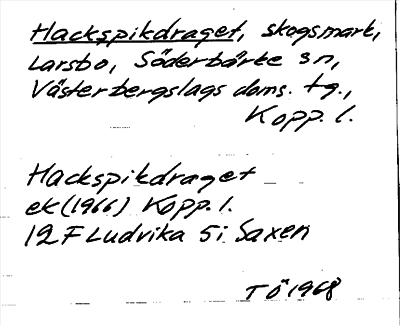 Hackspikdraget, skogsmark,
Larsbo, Söderbärke sn,
Västerbergslags doms. tg.,
Kopp. l.
Hackspikdraget
ek (1966) Kopp. l.
12F Ludvika 5i Saxen
TÖ 1968